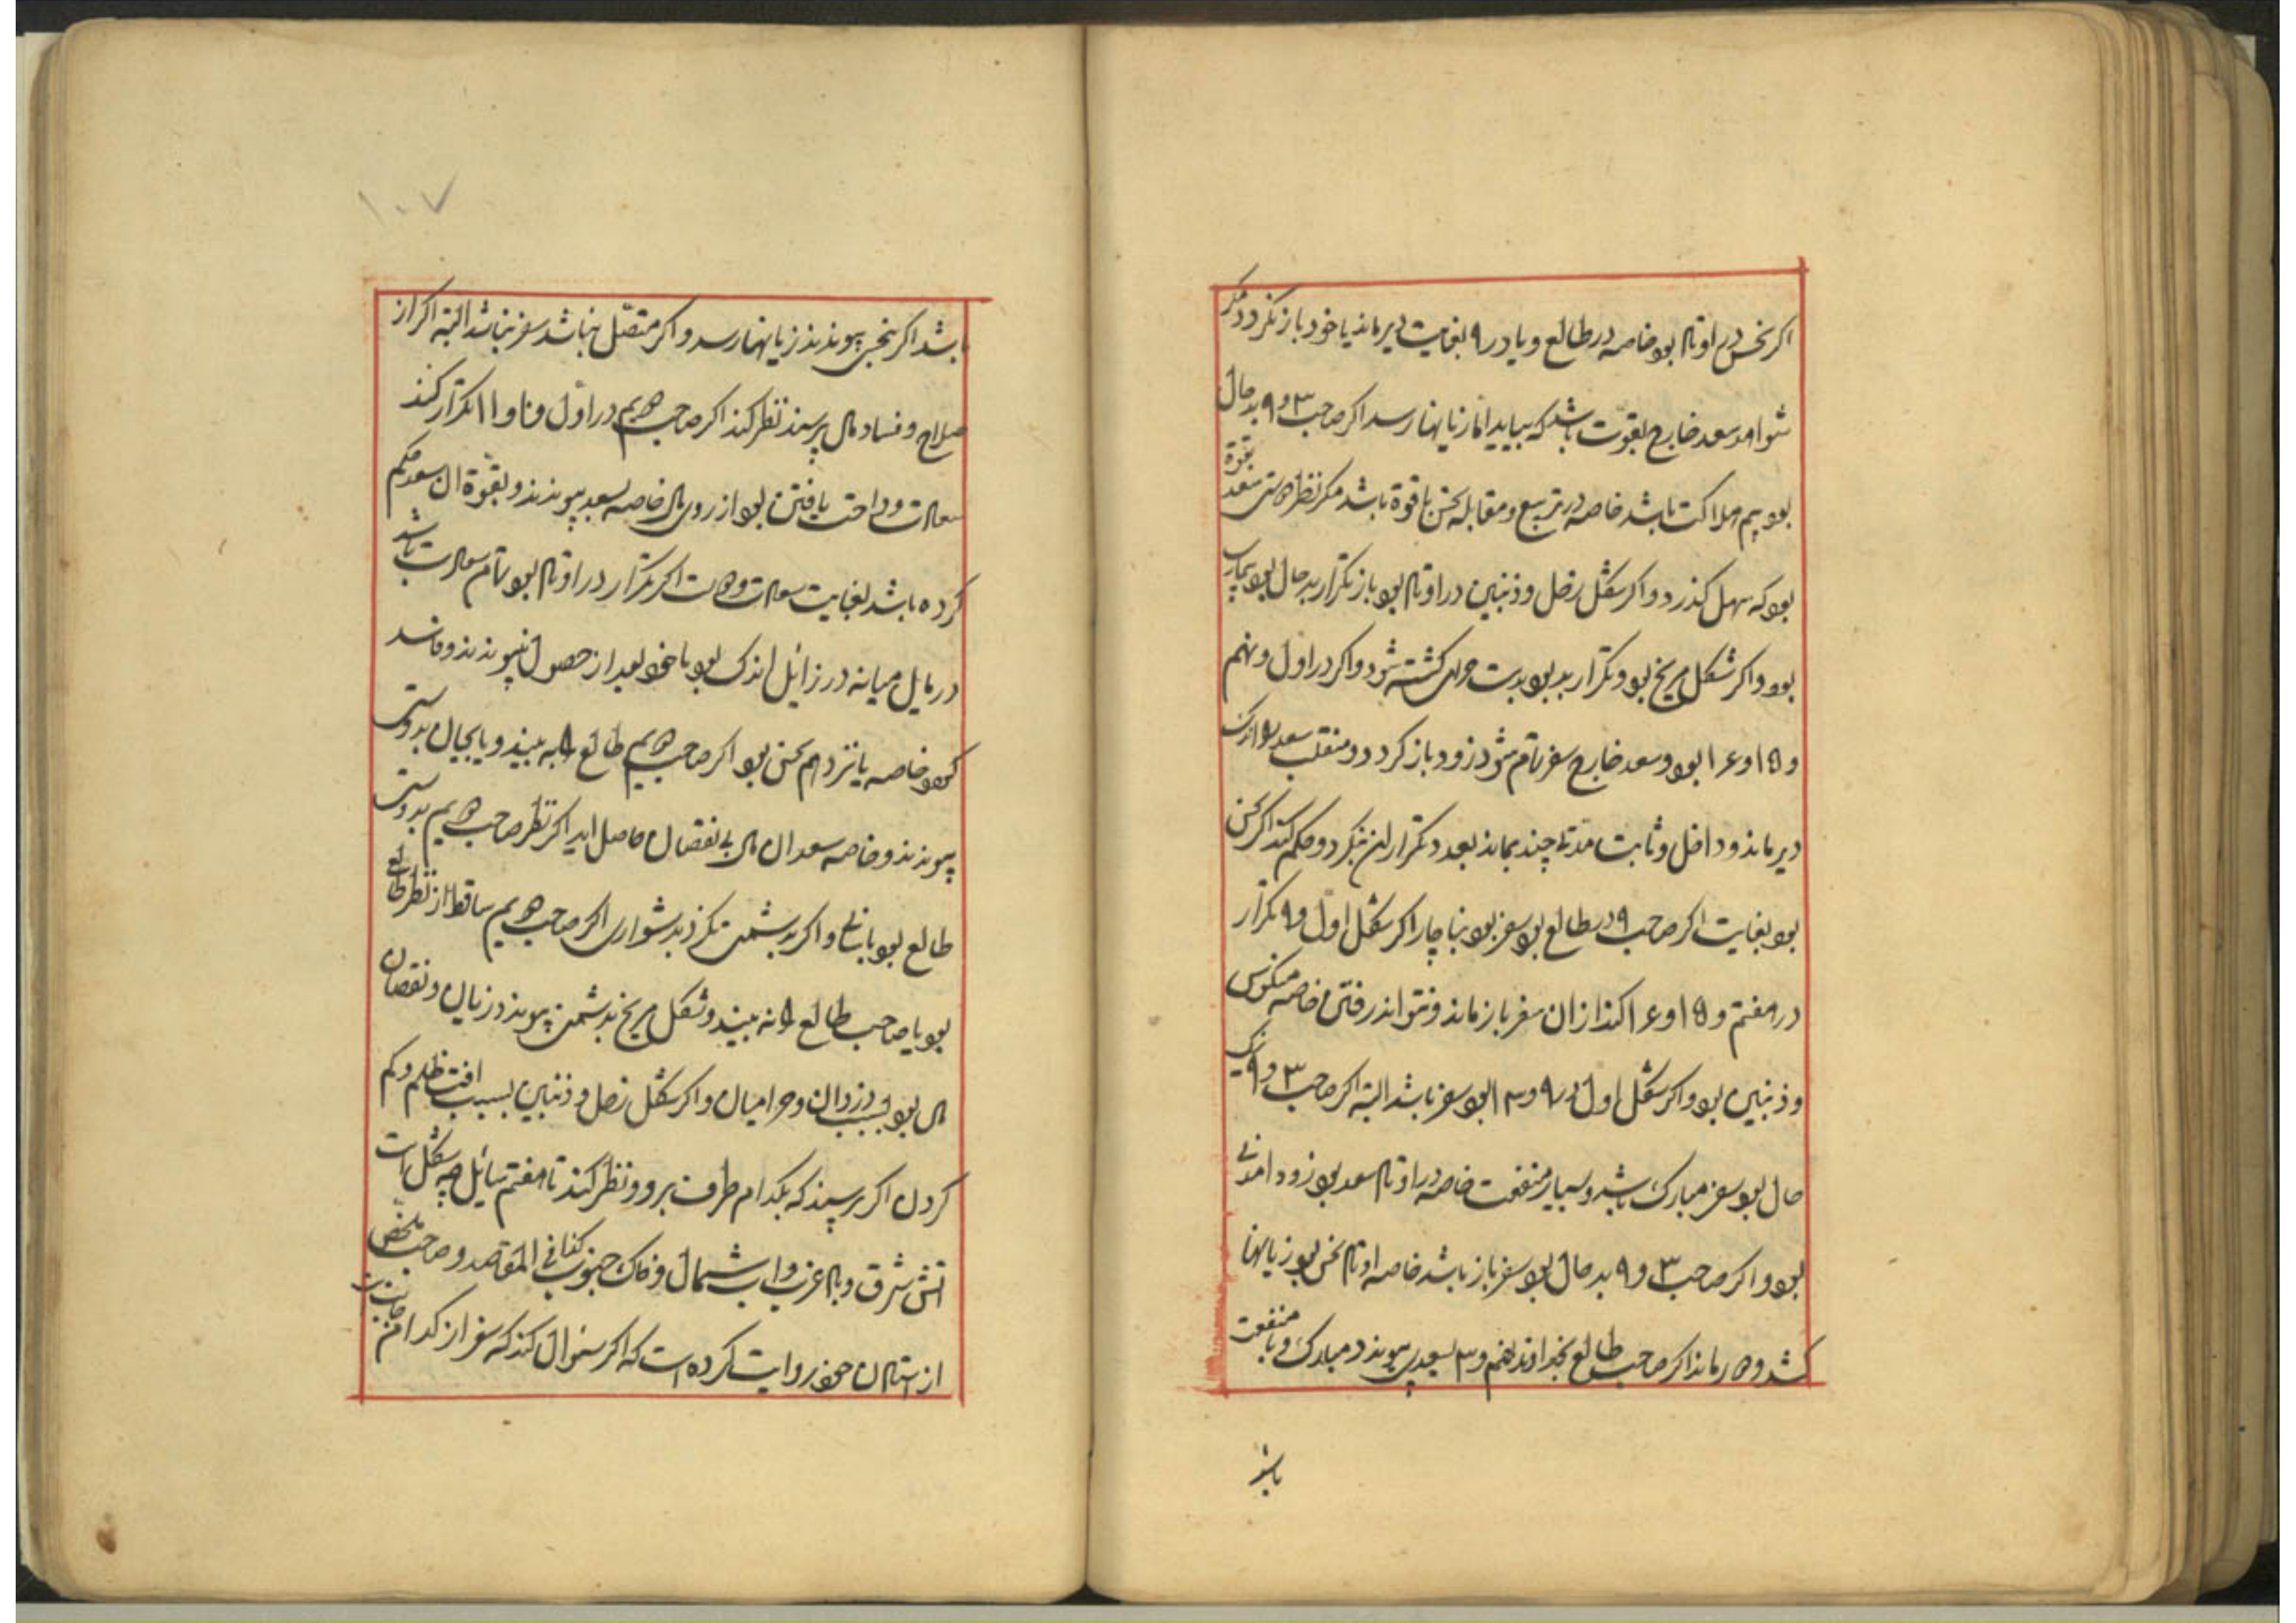 اکر نحس در اوتاد بود خاصه در طالع و یا در ۹ بغایت دیر ماند یا خود باز نکردد مکر
شواهد سعد خارج بقوت باشد که بیاید اما زیانها رسد اکر صاحب ۳ و ۹ بد حال
بود بیم هلاکت باشد خاصه در تربیع و مقابله نحس با قوة باشد مکر نظر دوستی سعد بقوة
بود که سهل کذرد و اکر شکل زحل و ذنبین در اوتاد بود باز تکرار بد حال بود بیمار
بود و اکر شکل مریخ بود و تکرار بد بود بدست حرامی کشته شود و اکر در اول و نهم
و ۱۵ و ۱۶ بود و سعد خارج سفر تمام شود زود باز کردد و منقلب سعد بود اندک
دیر ماند و داخل و ثابت مدتی چند بماند بعد تکرار ان نکرد و حکم کند اکر نحس
بود بغایت اکر صاحب ۹ در طالع بود سفر بود بناچار اکر شکل اول و ۹ تکرار
در هفتم و ۱۵ و ۱۶ کند از ان سفر باز ماند و نتواند رفتن خاصه منکوس
و ذنبین بود و اکر شکل اول در ۹ و ۳ بود سفر باشد البته اکر صاحب ۳ و ۹ نیک
حال بود سفر مبارک باشد و بسیار منفعت خاصه در اوتاد سعد بود زود امدنی
بود و اکر صاحب ۳ و ۹ بد حال بود سفر باز باشد خاصه اوتاد نحس بود زیانها
کشد و در ماند اکر صاحب طالع بخداوند نهم و ۳ بسعدی پیوندد مبارک و با منفعت
باشد
۱۰۷
باشد اکر بنحس پیوندد زیانها رسد و اکر متصل نباشد سفر نباشد البته اکر از
صلاح و فساد مال پرسند نظر کند اکر صاحب دویم در اول و ۱۰ و ۱۱ تکرار کند
سعادت و راحت یافتن بود از روی مال خاصه بسعد پیوندد و بقوة ان سعد حکم
کرده باشد بغایت سعادت و اکر تکرار در اوتاد بود تمام سعادت باشد
در مایل میانه در زائل اندک بود یا خود بعد از حصول پیوندد و فاسد
کردد خاصه یازدهم نحس بود اکر صاحب دویم طالع را به بیند و یا بحال بدوستی
پیوندد و خاصه سعد ان مال بی نقصان حاصل اید اکر نظر صاحب دویم بدوستی
طالع بود باسانی و اکر بدشمنی نکرد بدشواری اکر صاحب دویم ساقط از نظر طالع
بود یا صاحب طالع را نه بیند و شکل مریخ بدشمنی پیوندد زیان و نقصان
مال بود بسبب دزدان و حرامیان و اکر شکل زحل و ذنبین بسبب افت ظلم و کم
کردن اکر پرسند که بکدام طرف برود نظر کند تا هفتم سائل چه شکل است
اتش شرق و باد غرب و اب شمال و خاک جنوب کذا فی المقاصد و صاحب ملخص
از استادان خود روایت کرده است که اکر سئوال کند که سفر از کدام جانب